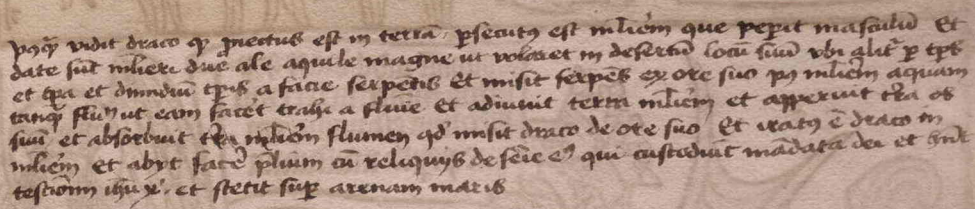 postq̄ vidit draco qp̄ piectus est in terrā p̄secutꝰ est mliēm que pepit masculū Et
date sūt mlieri due ale aquile magne ut volaret in desertū locū suū vbi alit̄ p tp̄s
et tp̄a et dimidiū tp̄is a facie serpētis Et misit serpēs ex ore suo pꝰ mliēm aquam
tanq̄ fluꝰ ut eam facēt trahi a fluīe Et adiuuit terra mliēm et apperuit tr̄a os
suū et absorbuit flumen qd̄ misit draco de ore suo Et iratꝰ ē draco in
mliēm et abyt facē p̄lium cū reliquys de seīe eꝰ qui custodiūt mādata dei et hn̄t
testiōnm ihū xp̄i et stetit sup arenam maris